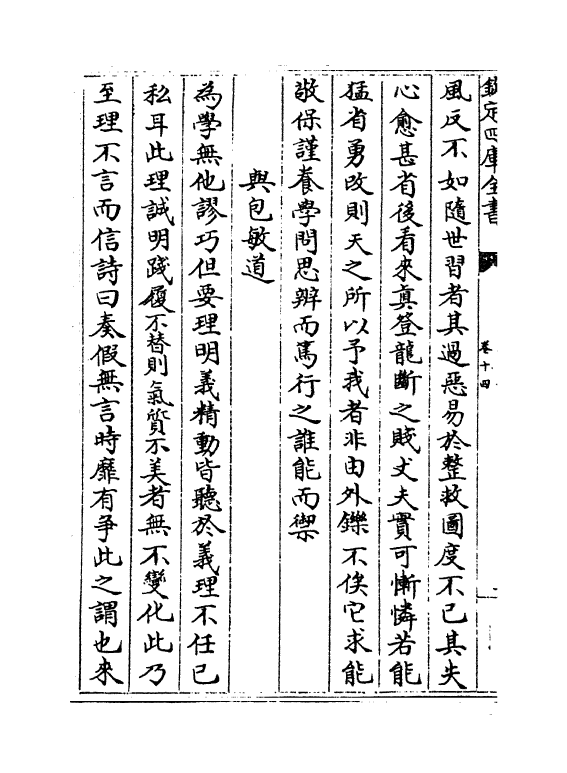 欽定四庫全書
卷十四
風反不如隨世習者其過惡易於整救圖度不已其失
心愈甚省後看來真登龍斷之賤丈夫實可慚憐若能
猛省勇改則天之所以予我者非由外鑠不俟它求能
敬保謹養學問思辨而篤行之誰能而禦
與包敏道
為學無他謬巧但要理明義精動皆聽於義理不任已
私耳此理誠明踐履不替則氣質不美者無不變化此乃
至理不言而信詩曰奏假無言時靡有爭此之謂也來